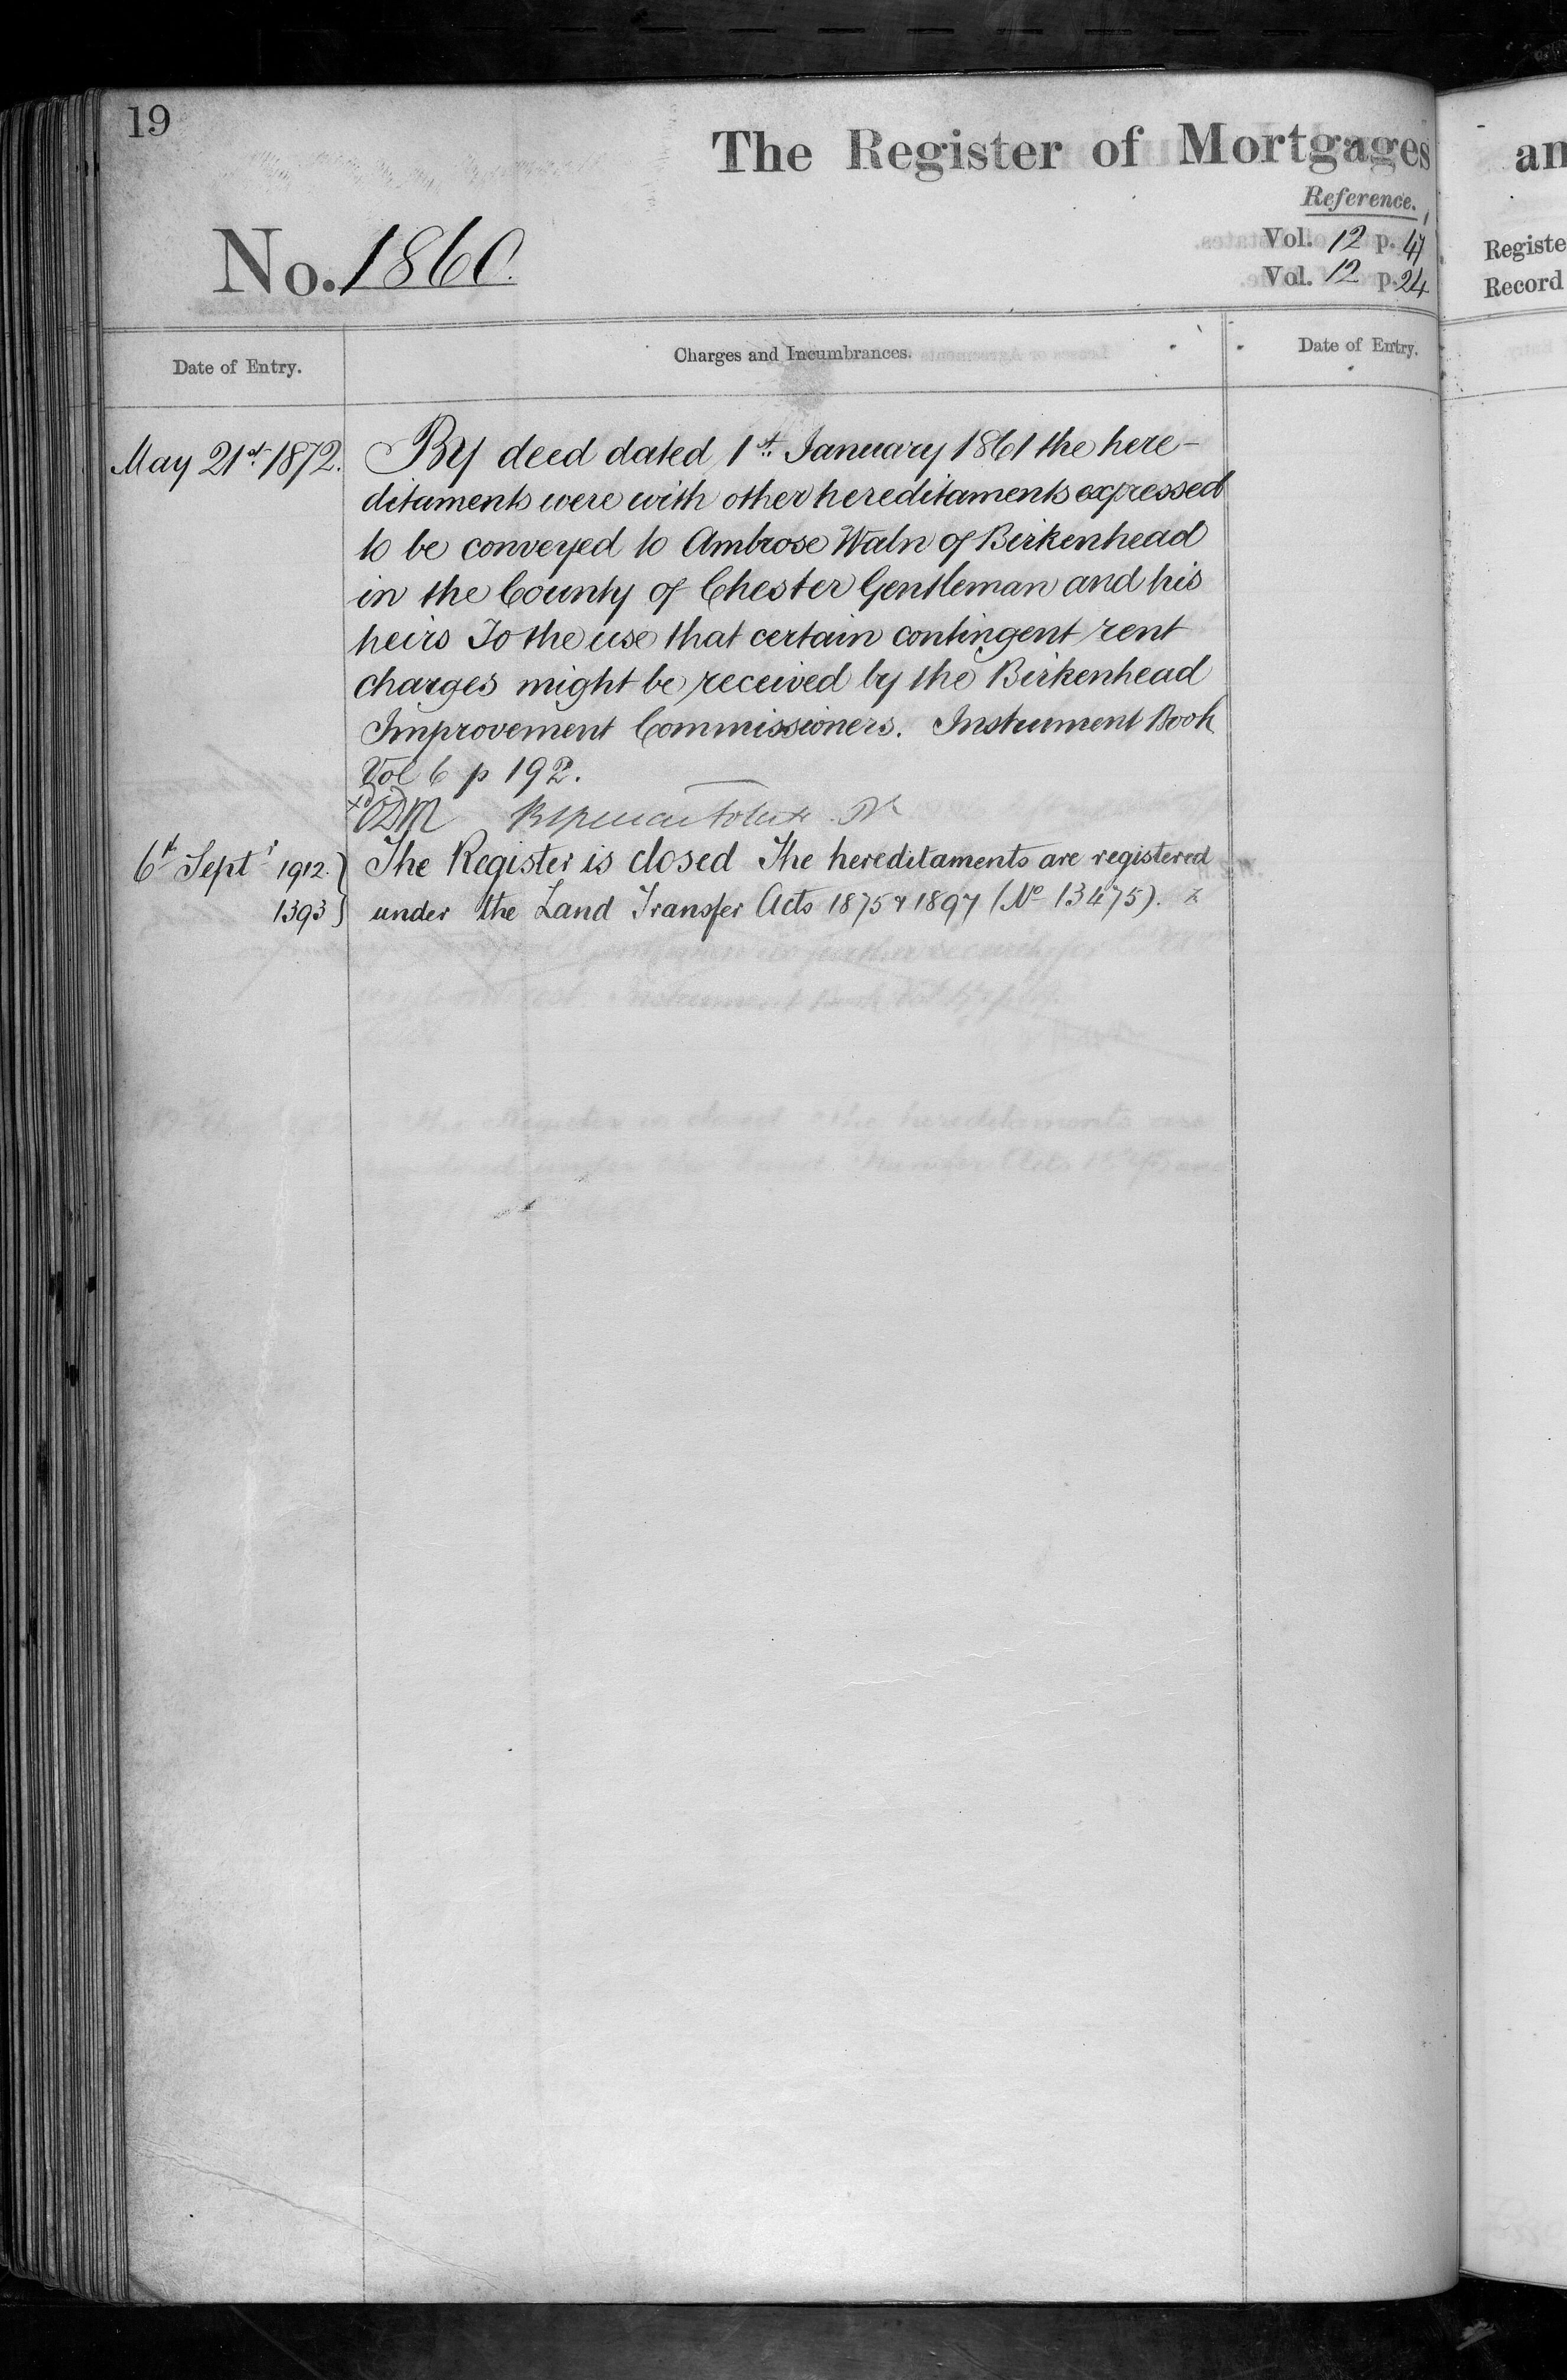 19
The Register of Mortgages
Reference.
No. 1860.
Vol. 12 p. 47
Vol. 12 p. 24
Date of Entry.
Charges and Incumbrances.
Date of Entry.
May 21st 1872.
By deed dated 1st January 1861 the here-
ditaments were with other hereditaments expressed
to be conveyed to Ambrose Waln of Birkenhead
in the County of Chester Gentleman and his
heirs To the use that certain contingent rent
charges might be received by the Birkenhead
Improvement Commissioners. Instrument Book
Vol 6 p 192.
6th Septr 1912.
1393
The Register is closed The hereditaments are registered
under the Land Transfer Acts 1875 & 1897 (No 13475).
an
Registe
Record